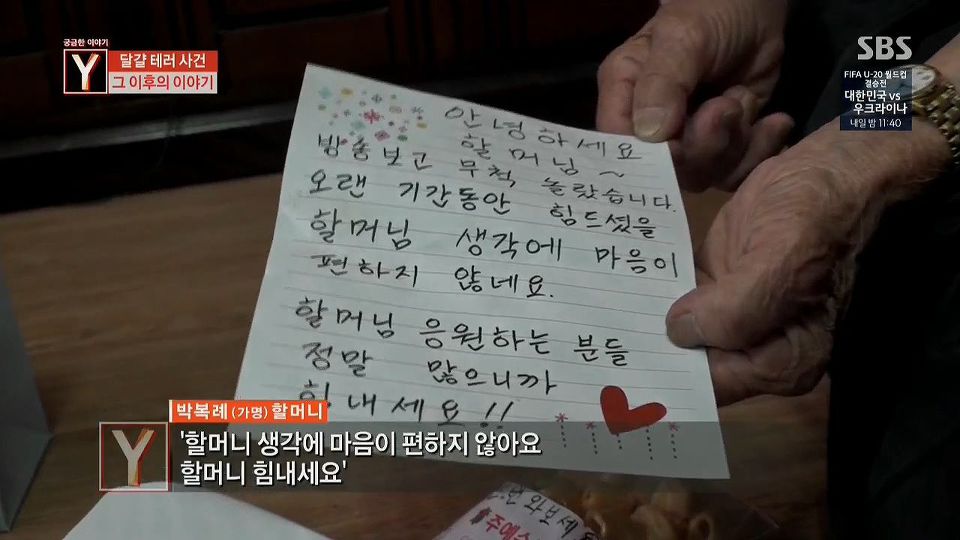 궁금한 이야기
Y
달걀 테러 사건
그 이후의 이야기
SBS
FIFA U-20 월드컵
결승전
대한민국 vs
우크라이나
내일 밤 11:40
안녕하세요
할머님~
방송보고 무척 놀랐습니다.
오랜 기간동안 힘드셨을
할머님 생각에 마음이
편하지 않네요.
할머님 응원하는 분들
정말 많으니까
힘내세요!!
박복례 (가명) 할머니
Y
'할머니 생각에 마음이 편하지 않아요
할머니 힘내세요'